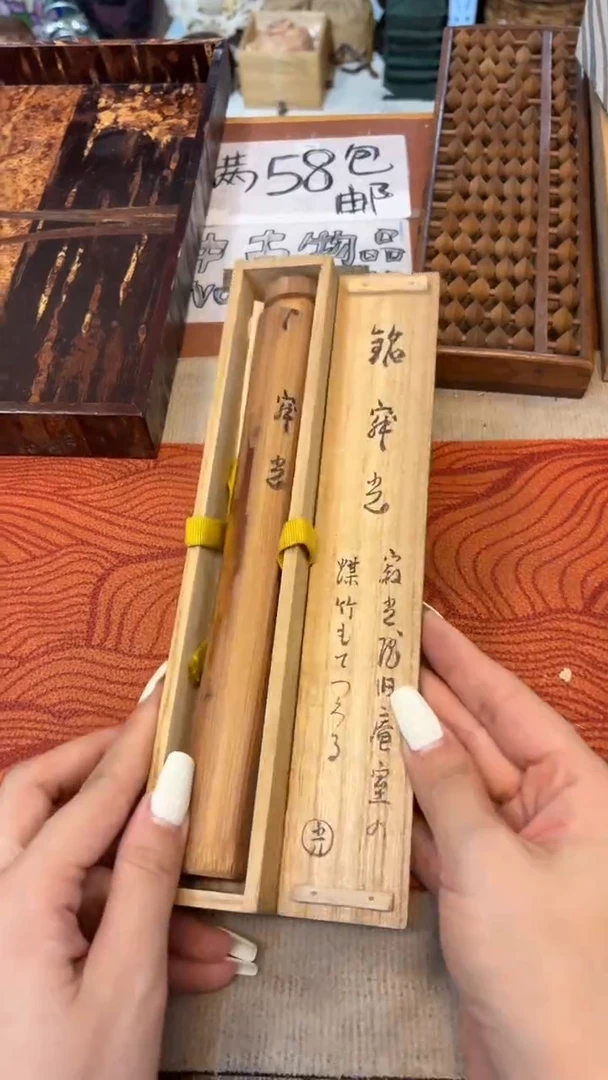 满58包
邮
中古物品
寂光
銘 寂光
寂光院旧庵室の
煤竹もてつくる